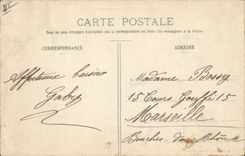 CARTE POSTALE
Tous les pays étrangers n'acceptent pas la correspondance au recto (Se renseigner à la Poste)
CORRESPONDANCE
ADRESSE
Affectueux baisers
Gaby
Madame Bossy
15 Cours Gouffé 15
Marseille
Bouches du Rhône